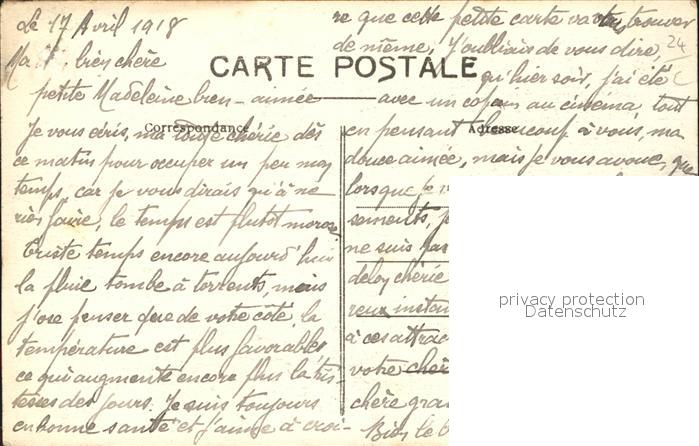 Le 17 Avril 1918
Ma bien chère
petite Madeleine bien-aimée
CARTE POSTALE
Correspondance
Je vous écris, ma toute chérie dès
ce matin pour occuper un peu mon
temps, car je vous dirais qu'à ne
rien faire, le temps est plutôt morose
Triste temps encore aujourd'hui
la pluie tombe à torrents, mais
j'ose penser que de votre côté, la
température est plus favorable,
ce qui augmente encore plus la tris-
tesse des jours. Je suis toujours
en bonne santé et j'aime à croi-
re que cette petite carte va vous trouver
de même. J'oubliais de vous dire,
24
qu'hier soir, j'ai été
avec un copain au cinéma tout
en pensant beaucoup à vous, ma
Adresse
douce aimée, mais je vous avoue, que
lorsque je v
sements, j
ne suis pas
chérie
reux instan
à ces attrac
votre chèr
chère gra
privacy protection
Datenschutz